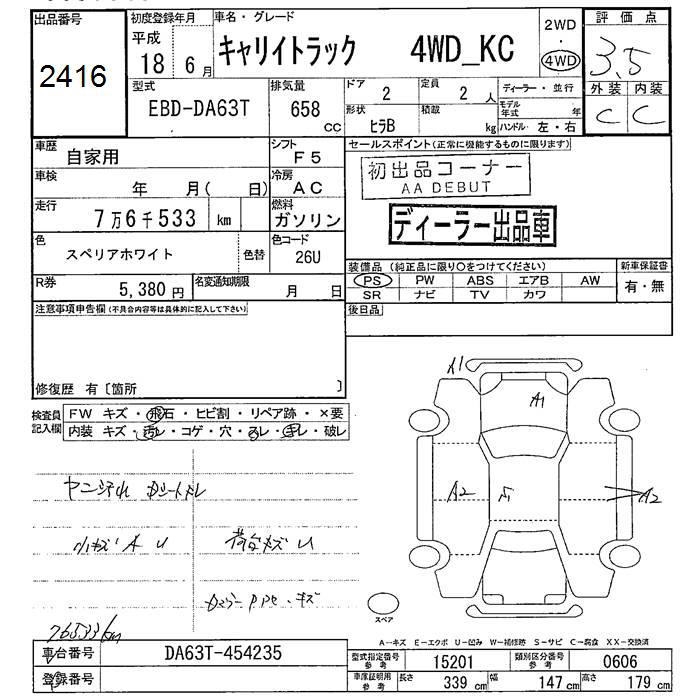 出品番号
2416
初度登録年月
平成
18 6月
車名・グレード
キャリイトラック 4WD_KC
2WD
・
4WD
評価点
3.5
外装 内装
C C
型式
EBD-DA63T
排気量
658
cc
ドア
2
定員
2 人
形状
ヒラB
積載
kg
ディーラー・並行
モデル年式 年
ハンドル 左・右
車歴
自家用
シフト
F5
車検
年 月( 日)
冷房
AC
走行
7万6千533 km
燃料
ガソリン
色
スペリアホワイト
色替
色コード
26U
R券
5,380 円
名変通知期限
月 日
セールスポイント(正常に機能するものに限ります)
初出品コーナー
AA DEBUT
ディーラー出品車
装備品(純正品に限り○をつけてください)
PS PW ABS エアB AW
SR ナビ TV カワ
新車保証書
有・無
後日品
注意事項申告欄(不具合内容等は具体的に記入して下さい)
修復歴 有〔箇所 〕
検査員
記入欄
FW キズ・飛石・ヒビ割・リペア跡・×要
内装 キズ・汚レ・コゲ・穴・スレ・キレ・破レ
小キズ A U
荷台キズ U
76533km
A1
A1
A2
A2
スペア
A-キズ E-エクボ U-凹み W-補修跡 S-サビ C-腐食 XX-交換済
車台番号
DA63T-454235
登録番号
型式指定番号
参考
15201
類別区分番号
参考
0606
車庫証明用
参考
長さ 339 cm 幅 147 cm 高さ 179 cm